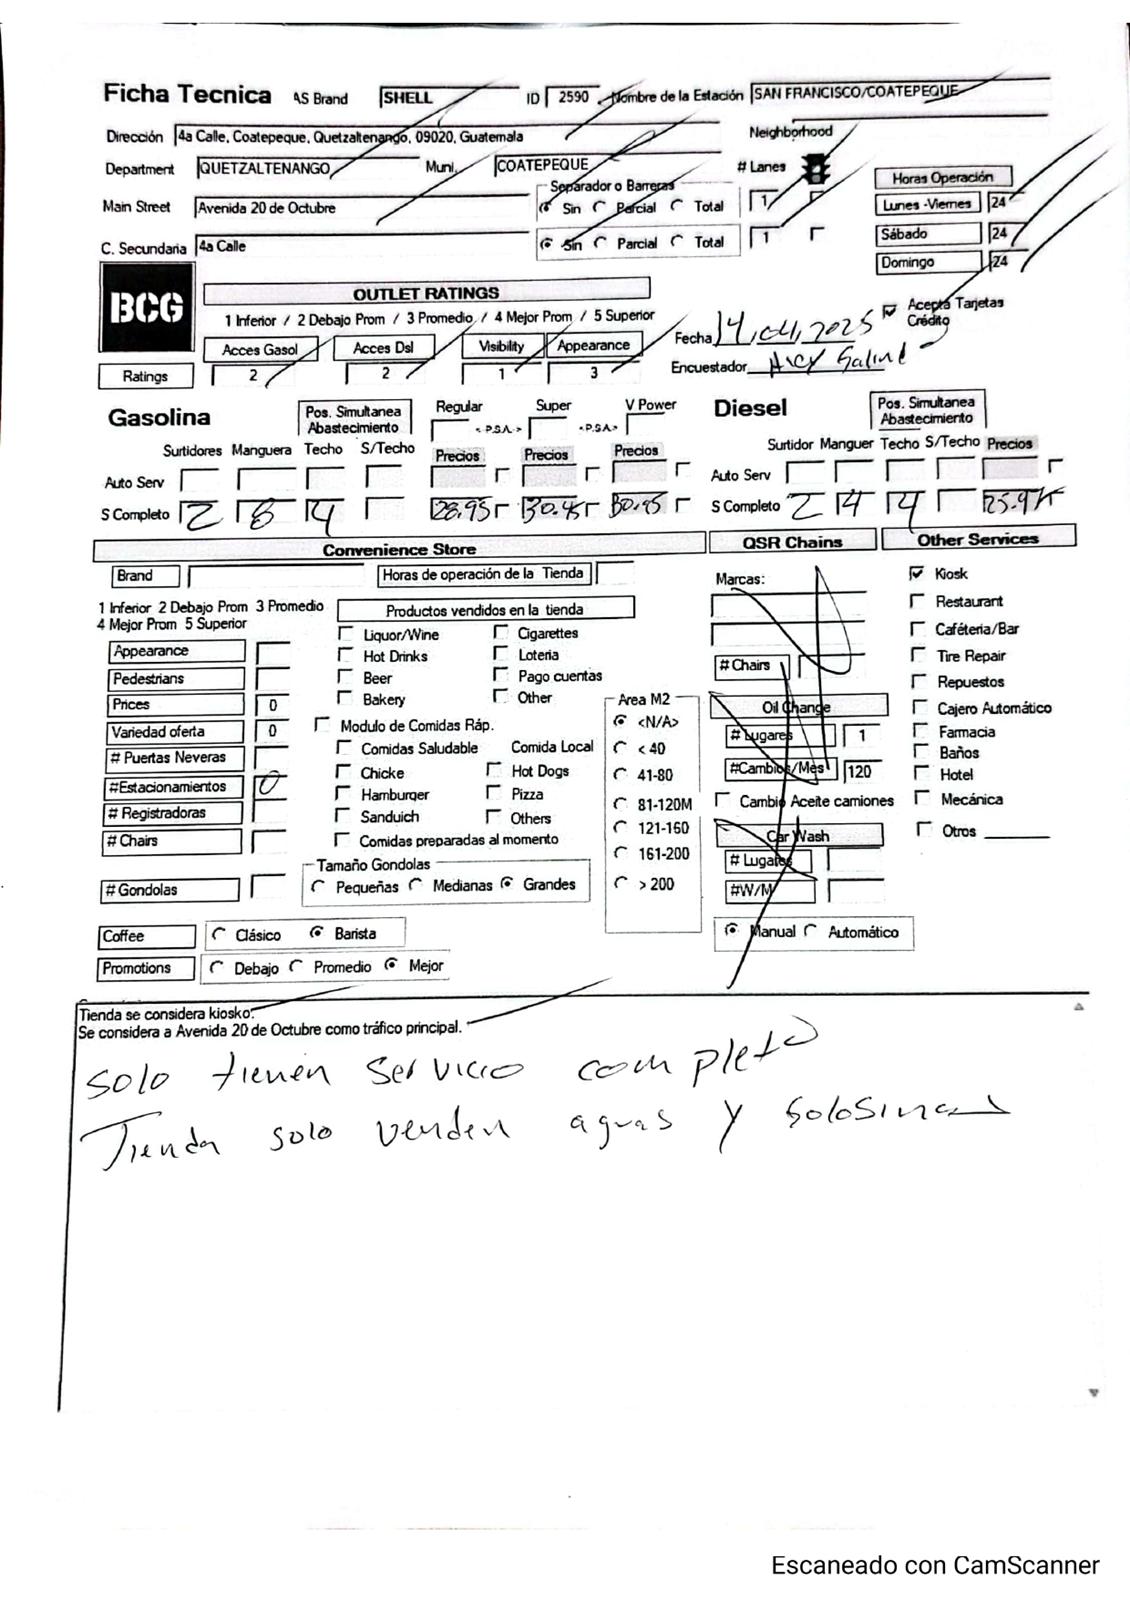 Ficha Tecnica AS Brand SHELL ID 2590 Nombre de la Estación SAN FRANCISCO/COATEPEQUE
Dirección 4a Calle, Coatepeque, Quetzaltenango, 09020, Guatemala Neighborhood
Department QUETZALTENANGO Muni. COATEPEQUE # Lanes Horas Operación
Separador o Barreras
Main Street Avenida 20 de Octubre Sin Parcial Total 1 Lunes -Viernes 24
Sábado 24
C. Secundaria 4a Calle Sin Parcial Total 1
Domingo 24
BCG
OUTLET RATINGS
1 Inferior / 2 Debajo Prom / 3 Promedio / 4 Mejor Prom / 5 Superior
Acepta Tarjetas Crédito
Fecha 14,04,2025
Acces Gasol Acces Dsl Visibility Appearance
Encuestador
Ratings 2 2 1 3
Gasolina Pos. Simultanea Abastecimiento Regular Super V Power Diesel Pos. Simultanea Abastecimiento
< P.S.A. > <P.S.A>
Surtidores Manguera Techo S/Techo Precios Precios Precios Surtidor Manguer Techo S/Techo Precios
Auto Serv Auto Serv
S Completo 2 8 4 28.95 30.45 30.95 S Completo 2 4 4 25.97
Convenience Store QSR Chains Other Services
Brand Horas de operación de la Tienda Marcas: Kiosk
1 Inferior 2 Debajo Prom 3 Promedio Productos vendidos en la tienda Restaurant
4 Mejor Prom 5 Superior
Liquor/Wine Cigarettes Caféteria/Bar
Appearance Hot Drinks Loteria # Chairs Tire Repair
Pedestrians Beer Pago cuentas Repuestos
Prices 0 Bakery Other Area M2 Oil Change Cajero Automático
Variedad oferta 0 Modulo de Comidas Ráp. <N/A> # Lugares 1 Farmacia
# Puertas Neveras Comidas Saludable Comida Local < 40 Baños
#Estacionamientos 0 Chicke Hot Dogs 41-80 #Cambios/Mes 120 Hotel
# Registradoras Hamburger Pizza 81-120M Cambio Aceite camiones Mecánica
# Chairs Sanduich Others 121-160 Car Wash Otros
Comidas preparadas al momento 161-200 # Lugares
Tamaño Gondolas
# Gondolas Pequeñas Medianas Grandes > 200 #W/M
Coffee Clásico Barista Manual Automático
Promotions Debajo Promedio Mejor
Tienda se considera kiosko.
Se considera a Avenida 20 de Octubre como tráfico principal.
Solo tienen servicio completo
Tienda solo venden aguas y golosinas
Escaneado con CamScanner